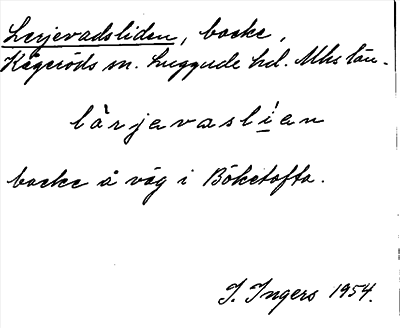 Lerjevadsliden, backe,
Kågeröds sn. Luggude hd. Mhs län.
lärjavaslían
backe å väg i Böketofta.
I. Ingers 1954.